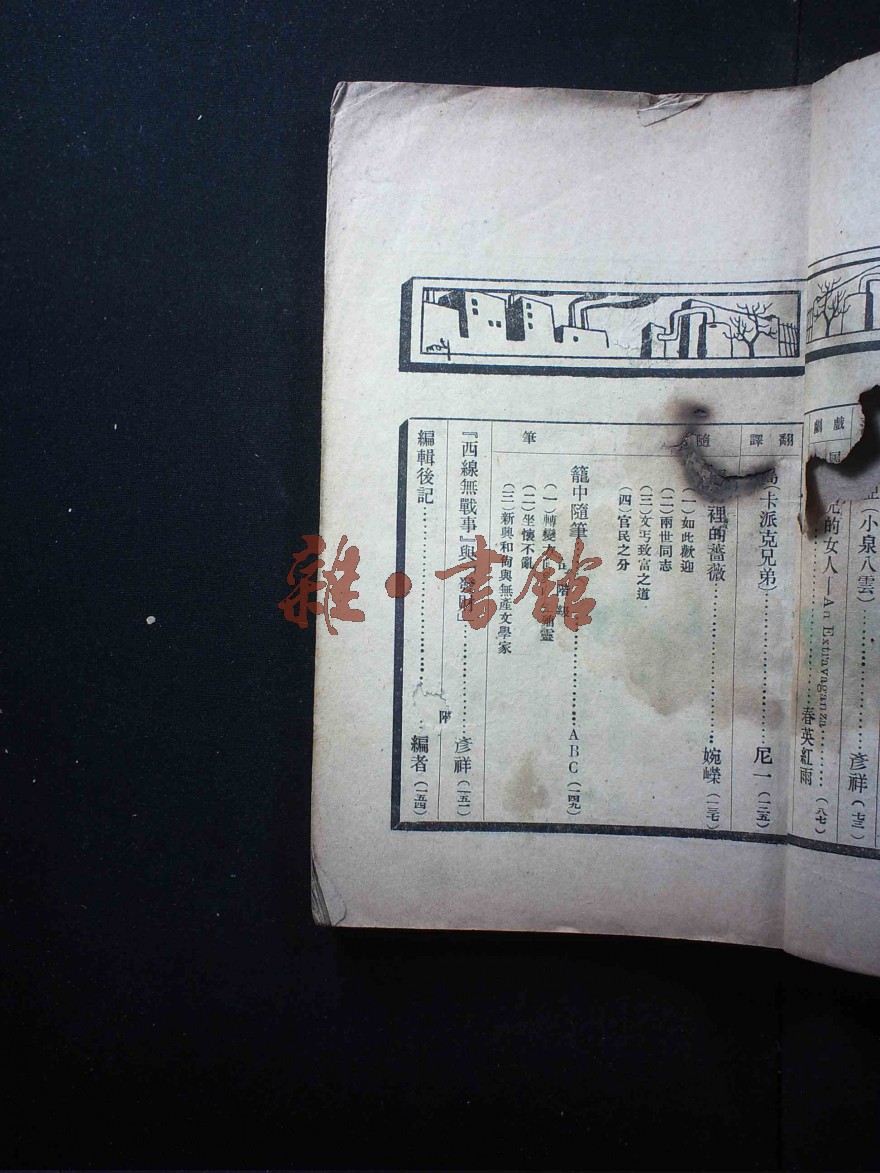 戲劇
記(小泉八雲)……彥祥(七三)
的女人—An Extravaganza……春英紅雨(八七)
翻譯
卡派克兄弟)……尼一(一二五)
隨筆
裡的薔薇……婉嶸(一三七)
(一)如此歡迎
(二)兩世同志
(三)文丐致富之道
(四)官民之分
籠中隨筆……ABC(一四九)
(一)轉變
(二)坐懷不亂
(三)新興和尚與無產文學家
『西線無戰事』與『發財』……彥祥(一五一)
編輯後記……編者(一五四)
附
雜·書館